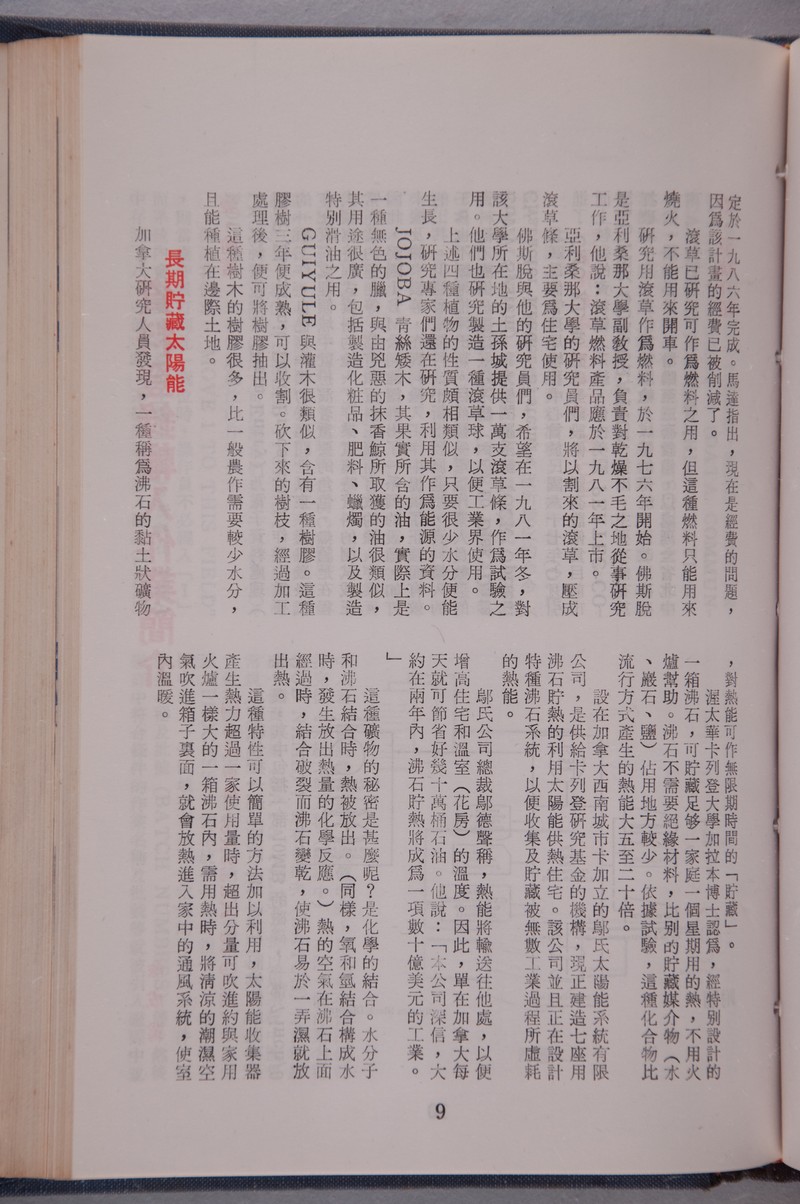 定於一九八六年完成。馬達指出，現在是經費的問題，
因爲該計畫的經費已被削減了。
滾草已研究可作爲燃料之用，但這種燃料只能用來
燒火，不能用來開車。
研究用滾草作爲燃料，於一九七六年開始。佛斯脫
是亞利桑那大學副敎授，負責對乾燥不毛之地從事研究
工作，他說：滾草燃料產品應於一九八一年上市。
亞利桑那大學的研究員們，將以割來的滾草，壓成
滾草條，主要爲住宅使用。
佛斯脫與他的研究員們，希望在一九八一年冬，對
該大學所在地的土孫城提供一萬支滾草條，作爲試驗之
用。他們也研究製造一種滾草球，以便工業界使用。
上述四種植物的性質頗相類似，只要很少水分便能
生長，研究專家們還在研究，利用其作爲能源的資料。
JOJOBA 靑絲矮木，其果實所含的油，實際上是
一種無色的臘，與由兇惡的抹香鯨所取獲的油很類似，
其用途很廣，包括製造化粧品、肥料、蠟燭，以及製造
特別滑油之用。
GUIYULE 與灌木很類似，含有一種樹膠。這種
膠樹三年便成熟，可以收割。砍下來的樹枝，經過加工
處理後，便可將樹膠抽出。
這種樹木的樹膠很多，比一般農作需要較少水分，
且能種植在邊際土地。
長期貯藏太陽能
加拿大研究人員發現，一種稱爲沸石的黏土狀礦物
，對熱能可作無限期時間的「貯藏」。
渥太華卡列登大學加拉本博士認爲，經特別設計的
一箱沸石，可貯藏足够一家庭一個星期用的熱，不用火
爐幫助。沸石不需要絕緣材料，比别的貯藏媒介物（水
、巖石、鹽）佔用地方較少。依據試驗，這種化合物比
流行方式產生的熱能大五至二十倍。
設在加拿大西南城市卡加立的鄔氏太陽能系統有限
公司，是供給卡列登研究基金的機構，現正建造七座用
沸石貯熱的利用太陽能供熱住宅。該公司並且正在設計
特種沸石系統，以便收集及貯藏被無數工業過程所虛耗
的熱能。
鄔氏公司總裁鄔德聲稱，熱能將輸送往他處，以便
增高住宅和溫室（花房）的溫度。因此，單在加拿大每
天就可節省好幾十萬桶石油。他說：「本公司深信，大
約在兩年內，沸石貯熱將成爲一項數十億美元的工業。
」
這種礦物的秘密是甚麼呢？是化學的結合。水分子
和沸石結合時，熱被放出。（同樣，氧和氫結合構成水
時，發生放出熱量的化學反應。）熱的空氣在沸石上面
經過時，結合破裂而沸石變乾，使沸石易於一弄濕就放
出熱。
這種特性可以簡單的方法加以利用，太陽能收集器
產生熱力超過一家使用量時，超出分量可吹進約與家用
火爐一樣大的一箱沸石內，需用熱時，將淸凉的潮濕空
氣吹進箱子裏面，就會放熱進入家中的通風系統，使室
內溫暖。
9